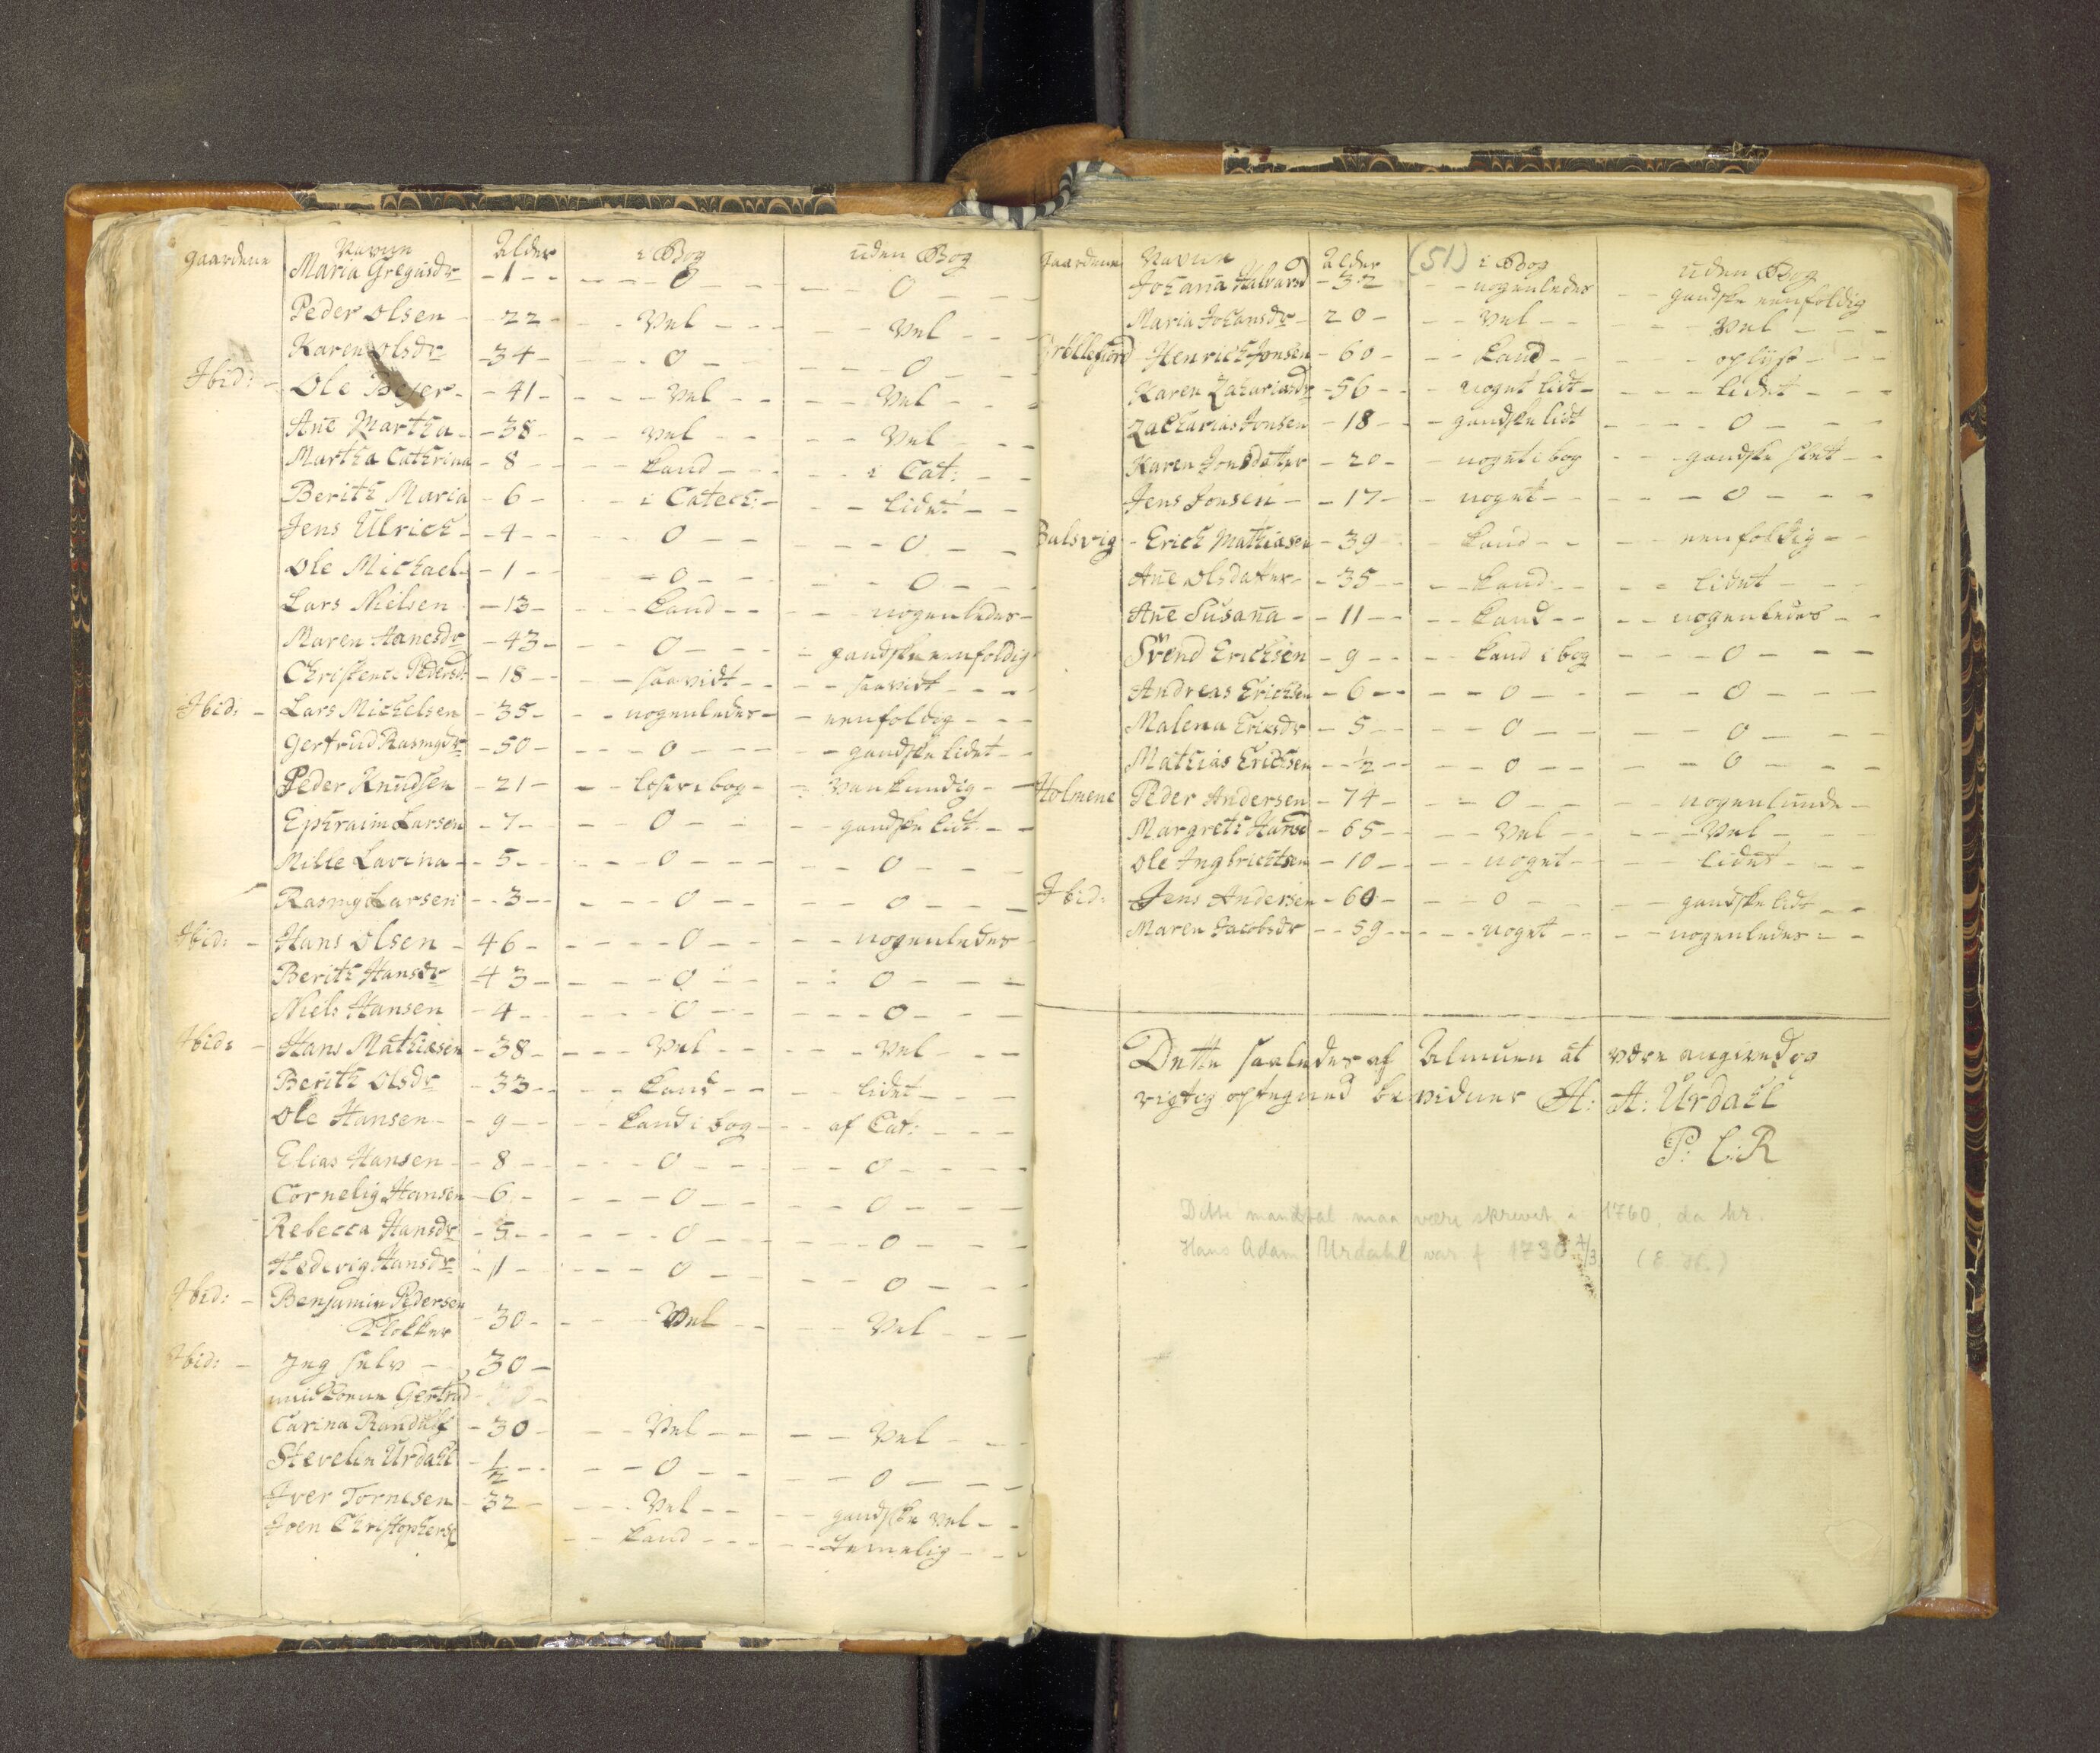 Gaardene Navne Alder i Bog uden Bog
Maria Gregusdr - 1 - - 0 - - 0 - -
Peder Olsen - 22 - - Vel - - Vel - -
Karen Olsdr - 34 - - 0 - - 0 - -
Ibid: - Ole Beyer - 41 - - Vel - - Vel - -
Ane Martha - 38 - - Vel - - Vel - -
Martha Cathrina - 8 - - kand - - i Cat: - -
Berith Maria - 6 - - i Catech: - - lidet - -
Jens Ulrich - 4 - - 0 - - 0 - -
Ole Michael - 1 - - 0 - - 0 - -
Lars Nielsen - 13 - - kand - - nogenledes -
Maren Hanesdr - 43 - - 0 - - gandske eenfoldig
Christence Pedersdr - 18 - - saavidt - - saavidt - -
Ibid: - Lars Michelsen - 35 - - nogenledes - - eenfoldig - -
Gertrud Rasmusdr - 50 - - 0 - - gandske lidet - -
Peder Knudsen - 21 - - læser i bog - - Vankundig - -
Ephraim Larsen - 7 - - 0 - - gandske lidt - -
Mille Lavina - 5 - - 0 - - 0 - -
Rasmus Larsen - 3 - - 0 - - 0 - -
Ibid: - Hans Olsen - 46 - - 0 - - nogenledes
Berith Hansdr - 43 - - 0 - - 0 - -
Niels Hansen - 4 - - 0 - - 0 - -
Ibid: - Hans Mathiesen - 38 - - Vel - - Vel - -
Berith Olsdr - 33 - - kand - - lidet - -
Ole Hansen - 9 - - kand i bog - - af Cat: - -
Elias Hansen - 8 - - 0 - - 0 - -
Cornelius Hansen - 6 - - 0 - - 0 - -
Rebecca Hansdr - 5 - - 0 - - 0 - -
Hedevig Hansdr - 1 - - 0 - - 0 - -
Ibid: - Benjamin Pedersen
Klokker - 30 - - Vel - - Vel - -
Ibid: - Jeg selv - 30 -
min Konne Gertrud
Carina Randulf - 30 - - Vel - - Vel - -
Stevelin Urdahl - 1/2 - - 0 - - 0 - -
Iver Tornesen - 32 - - Vel - - gandske vel - -
Joen Christophers - - kand - - temelig - -
Gaardene Navne Alder (51) i Bog uden Bog
Johana Halvarsd - 32 - - nogenledes - - gandske eenfoldig
Maria Johansdr - 20 - - Vel - - Vel - -
Grøllefiord - Henrich Jonsen - 60 - - kand - - oplyst - -
Karen Zachariasdr - 56 - - noget lidt - - lidet - -
Zacharias Jonsen - 18 - - gandske lidt - - 0 - -
Karen Jonsdatter - 20 - - noget i bog - - gandske slet - -
Jens Jonsen - 17 - - noget - - 0 - -
Balsvig - Erich Mathiasen - 39 - - kand - - eenfoldig - -
Ane Olsdatter - 35 - - kand - - lidet - -
Ane Susana - 11 - - kand - - nogenledes - -
Svend Erichsen - 9 - - kand i bog - - 0 - -
Andreas Erichsen - 6 - - 0 - - 0 - -
Malena Ericsdr - 5 - - 0 - - 0 - -
Mathias Erichsen - 1/2 - - 0 - - 0 - -
Holmene Peder Andersen - 74 - - 0 - - nogenlunde -
Margreth Hansd - 65 - - Vel - - Vel - -
Ole Ingbrichtsen - 10 - - noget - - lidet - -
Ibid: Jens Andersen - 60 - - 0 - - gandske lidt - -
Maren Jacobsdr - 59 - - noget - - nogenledes - -
Dette saaledes af Almuen at være angived og
rigtig optegned bevidner H: A: Urdahl
P: C: R
Dette mandtal maa være skrevet i 1760, da hr.
Hans Adam Urdahl var f 1730 4/3 (E. H.)